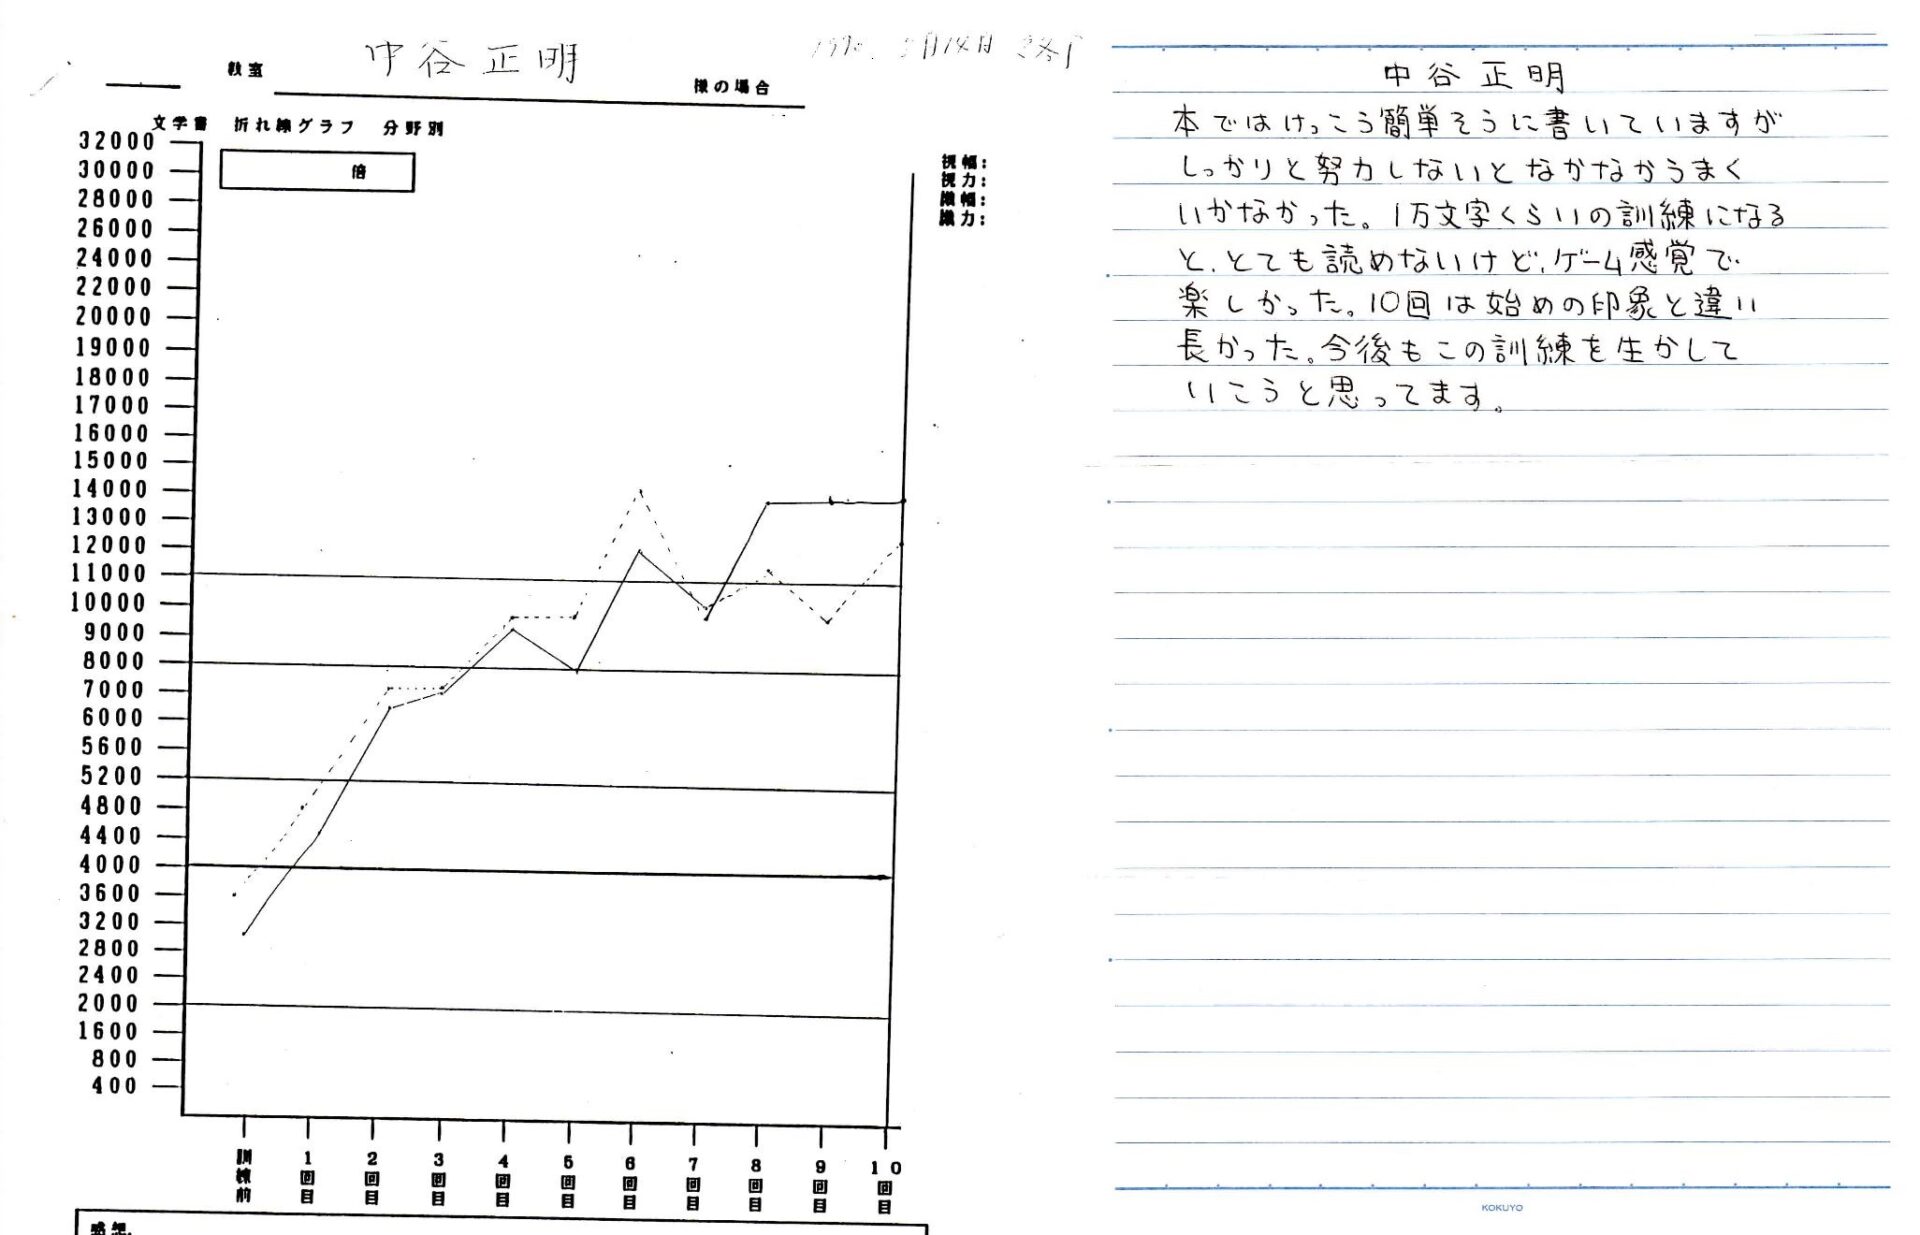 中谷正明
教室
様の場合
文学書 折れ線グラフ 分野別
倍
視幅:
視力:
識幅:
識力:
32000
30000
28000
26000
24000
22000
20000
19000
18000
17000
16000
15000
14000
13000
12000
11000
10000
9000
8000
7000
6000
5600
5200
4800
4400
4000
3600
3200
2800
2400
2000
1600
800
400
訓練前
1回目
2回目
3回目
4回目
5回目
6回目
7回目
8回目
9回目
10回目
感想
中谷正明
本ではけっこう簡単そうに書いていますが
しっかりと努力しないとなかなかうまく
いかなかった。1万文字くらいの訓練になる
と、とても読めないけど、ゲーム感覚で
楽しかった。10回は始めの印象と違い
長かった。今後もこの訓練を生かして
いこうと思ってます。
KOKUYO